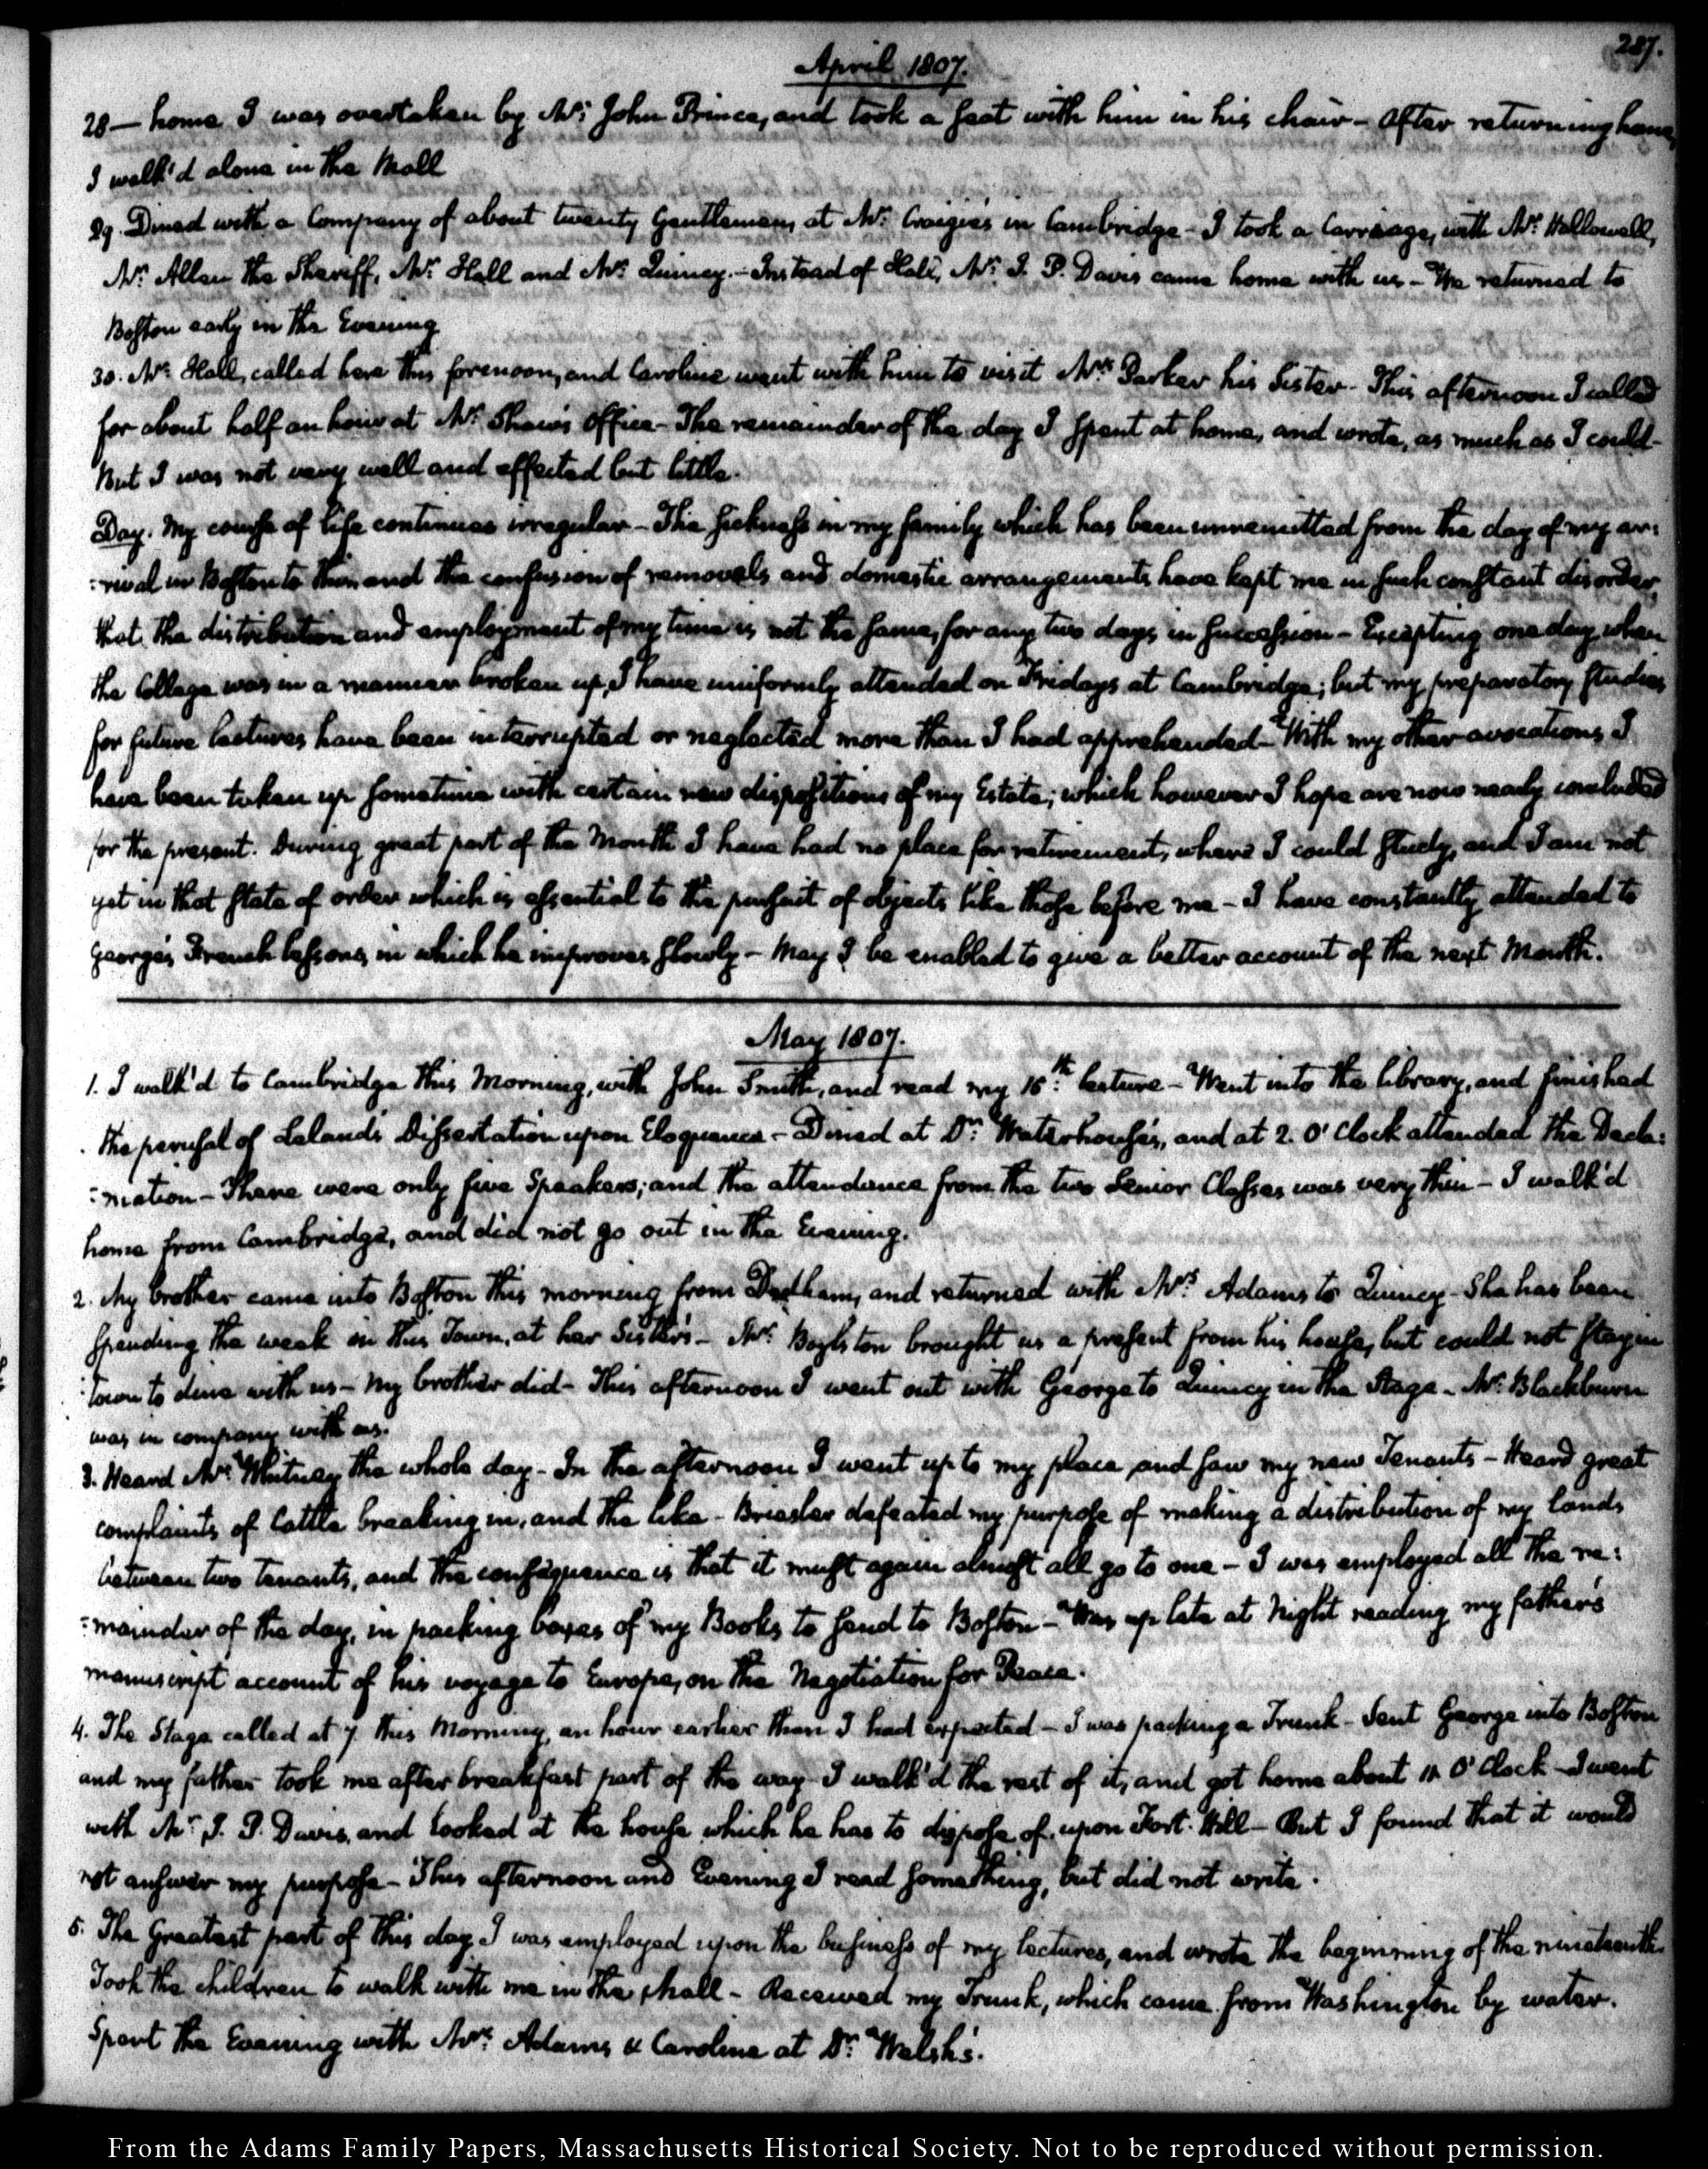 287.
April 1807.
28 — home I was overtaken by Mr: John Prince, and took a seat with him in his chair - After returning home,
I walk'd alone in the Mall
29. Dined with a Company of about twenty Gentlemen, at Mr: Craigie's in Cambridge - I took a Carriage, with Mr: Hallowell,
Mr: Allen the Sheriff, Mr: Hall and Mr: Quincy. - Instead of Hall, Mr: I. P. Davis came home with us - We returned to
Boston early in the Evening
30. Mr: Hall, called here this forenoon, and Caroline went with him to visit Mrs: Parker his Sister - This afternoon I called
for about half an hour at Mr: Shaw's office - The remainder of the day I spent at home, and wrote, as much as I could -
But I was not very well and effected but little.
Day. My course of life continues irregular - The sickness in my family which has been unremitted from the day of my ar:
:rival in Boston to them and the confusion of removals and domestic arrangements have kept me in such constant disorder,
that the distribution and employment of my time is not the same, for any two days in succession - Excepting one day when
the College was in a manner broken up, I have uniformly attended on Fridays at Cambridge; but my preparatory studies
for future lectures have been interrupted or neglected more than I had apprehended - With my other avocations I
have been taken up sometime with certain new dispositions of my Estate; which however I hope are now nearly concluded
for the present. During great part of the Month I have had no place for retirement, where I could study, and I am not
yet in that state of order which is essential to the pursuit of objects like those before me - I have constantly attended to
George's French lessons, in which he improves slowly - May I be enabled to give a better account of the next Month.
May 1807.
1. I walk'd to Cambridge this Morning, with John Smith, and read my 15th: lecture - Went into the library, and finished
the perusal of Leland's Dissertation upon Eloquence - Dined at Dr: Waterhouse's, and at 2. O'Clock attended the Decla:
:mation - There were only five Speakers; and the attendance from the two Senior Classes was very thin - I walk'd
home from Cambridge, and did not go out in the Evening.
2. My brother came into Boston this morning from Dedham, and returned with Mrs: Adams to Quincy - She has been
spending the week in this Town, at her Sister's - Mr: Boylston brought us a present from his house, but could not stay in
town to dine with us - My brother did - This afternoon I went out with George to Quincy in the Stage - Mr: Blackburn
was in company with us.
3. Heard Mr: Whitney the whole day - In the afternoon I went up to my place and saw my new Tenants - Heard great
complaints of Cattle breaking in, and the like - Briesler defeated my purpose of making a distribution of my lands
between two tenants, and the consequence is that it must again almost all go to one - I was employed all the re:
:mainder of the day, in packing boxes of my Books to send to Boston - Was up late at Night reading my father's
manuscript account of his voyage to Europe, on the Negotiation for Peace.
4. The Stage called at 7 this Morning, an hour earlier than I had expected - I was packing a Trunk - Sent George into Boston
and my father took me after breakfast part of the way I walk'd the rest of it, and got home about 11 O'Clock - I went
with Mr: I. P. Davis, and looked at the house which he has to dispose of, upon Fort-Hill - But I found that it would
not answer my purpose - This afternoon and Evening I read something, but did not write.
5. The Greatest part of this day I was employed upon the business of my lectures, and wrote the beginning of the nineteenth.
Took the children to walk with me in the Mall - Received my Trunk, which came from Washington by water.
Spent the Evening with Mrs: Adams & Caroline at Dr: Welsh's.
From the Adams Family Papers, Massachusetts Historical Society. Not to be reproduced without permission.